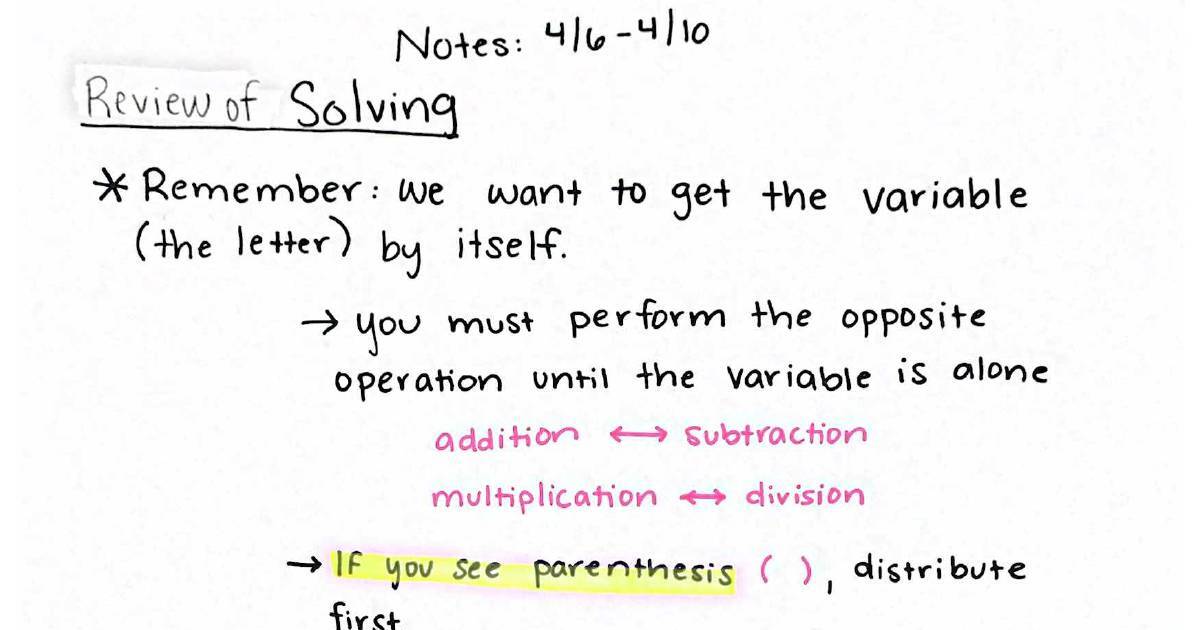 Notes: 4/6-4/10
Review of Solving
* Remember: we want to get the variable
(the letter) by itself.
→ you must perform the opposite
operation until the variable is alone
addition ↔ subtraction
multiplication ↔ division
→ If you see parenthesis ( ), distribute
first